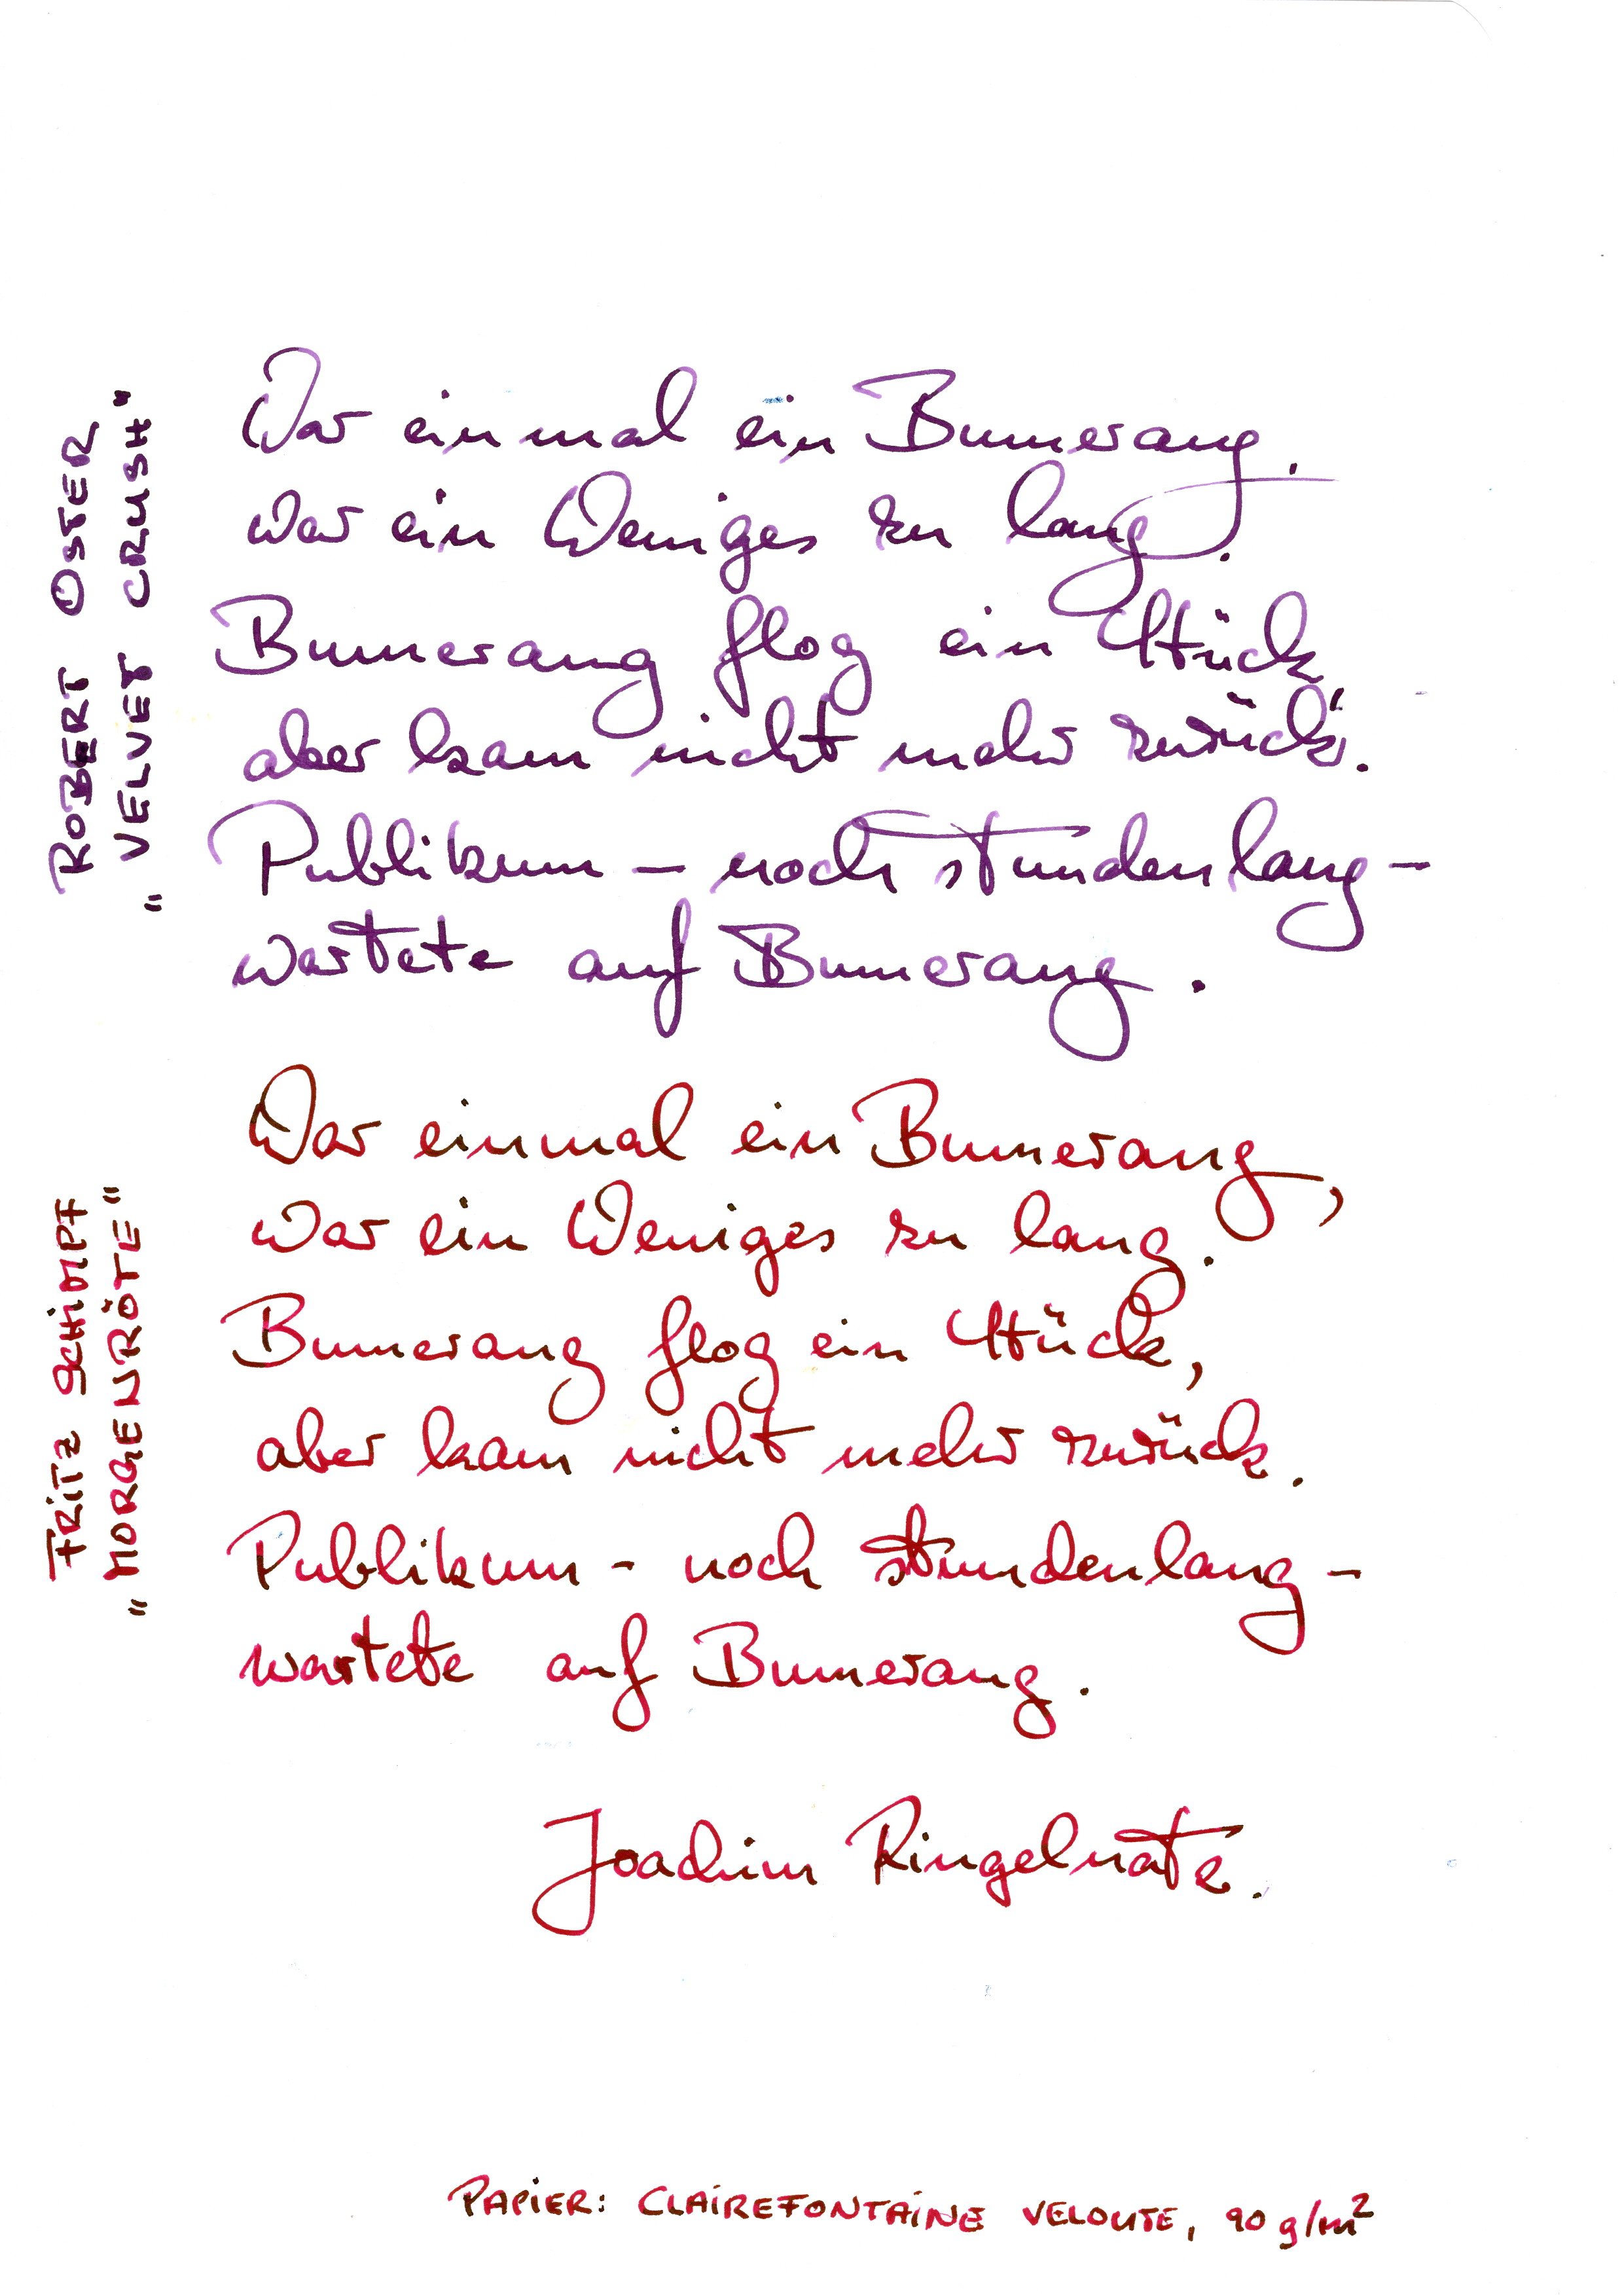 ROBERT OSTER
"VELVET CRUSH"
War einmal ein Bumerang.
War ein Weniges zu lang.
Bumerang flog ein Stück,
aber kam nicht mehr zurück.
Publikum – noch stundenlang –
wartete auf Bumerang.
FRITZ SCHIMPF
"MORGENRÖTE"
War einmal ein Bumerang,
war ein Weniges zu lang.
Bumerang flog ein Stück,
aber kam nicht mehr zurück.
Publikum - noch stundenlang -
wartete auf Bumerang.
Joachim Ringelnatz.
PAPIER: CLAIREFONTAINE VELOUTE, 90 g/m²